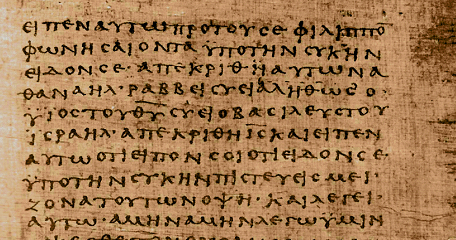 ειπεν αυτω προ του σε φιλιππο̅
φωνησαι οντα υπο την συκην
ειδον σε · απεκριθη αυτω να
θαναηλ · ραββει συ ει αληθως ο ·
υιος του θ̅υ̅ συ ει ο βασιλευς του
ισραηλ · απεκριθη ι̅ς̅ και ειπεν
αυτω οτι ειπον σοι οτι ειδον σε
υπο την συκην πιστευεις μει ·
ζονα τουτων οψη · και λεγει ·
αυτω · αμην αμην λεγω υμιν